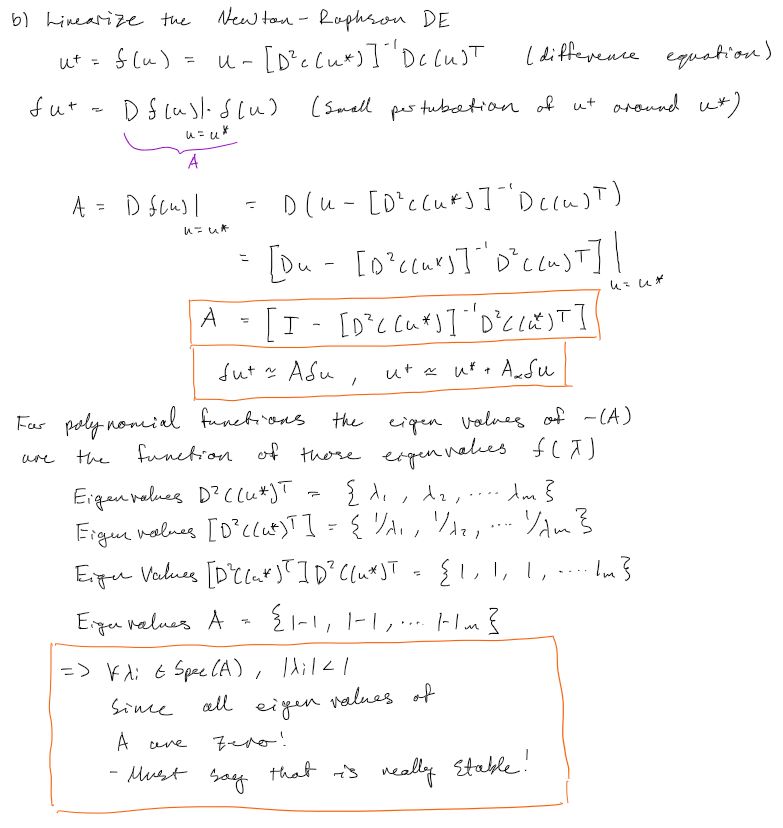 b) Linearize the Newton-Raphson DE
u+ = f(u) = u - [D²c(u*)]⁻¹ Dc(u)ᵀ (difference equation)
δu+ = Df(u)|·δ(u) (Small pertubation of u+ around u*)
u=u*
A
A = Df(u)| = D(u - [D²c(u*)]⁻¹ Dc(u)ᵀ)
u=u*
= [Du - [D²c(u*)]⁻¹ D²c(u)ᵀ]|
u=u*
A = [I - [D²c(u*)]⁻¹ D²c(u*)ᵀ]
δu+ ≃ Aδu , u+ ≃ u* + Aδu
For polynomial functions the eigen values of -(A)
are the function of those eigenvalues f(λ)
Eigenvalues D²c(u*)ᵀ = { λ₁, λ₂, .... λm }
Eigen values [D²c(u*)ᵀ] = { 1/λ₁, 1/λ₂, ... 1/λm }
Eigen Values [D²c(u*)ᵀ] D²c(u*)ᵀ = { 1, 1, 1, .... 1m }
Eigenvalues A = { 1-1, 1-1, ... 1-1m }
=> ∀λi ∈ Spec(A), |λi| < 1
Since all eigen values of
A are zero!
- Must say that is really stable!